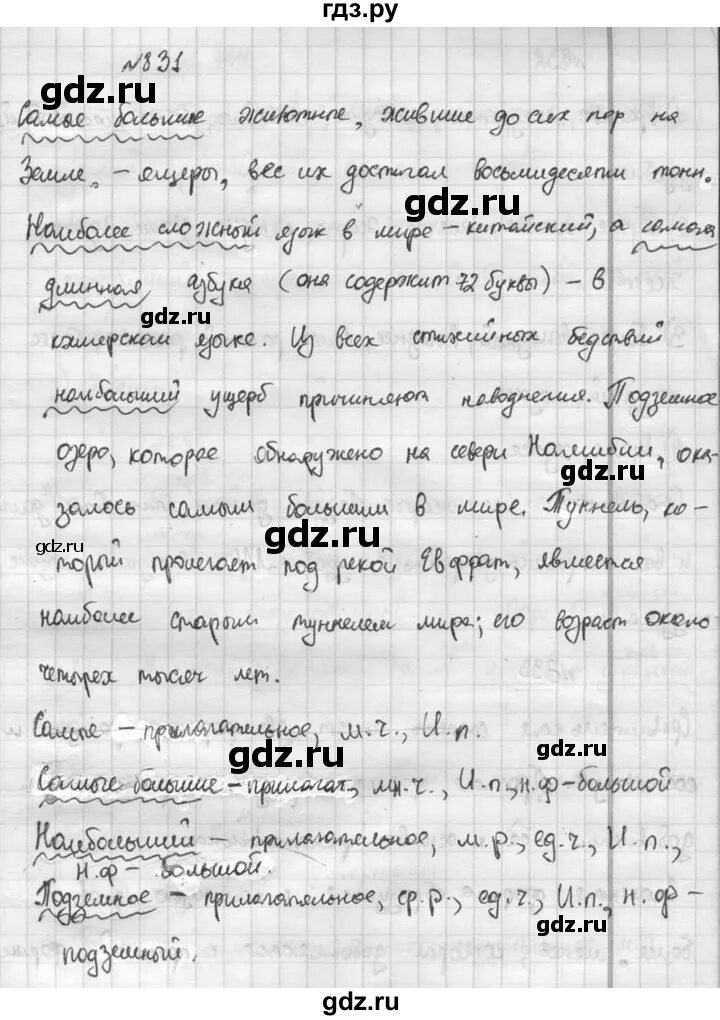 гдз.ру
№831
gdz.ru
Самые большие животные, жившие до сих пор на
gdz.ru
Земле, – ящеры, вес их достигал восьмидесяти тонн.
gdz.ru
Наиболее сложный язык в мире – китайский, а самая
длинная азбука (она содержит 72 буквы) – в
gdz.ru
кхмерском языке. Из всех стихийных бедствий
gdz.ru
наибольший ущерб причиняют наводнения. Подземное
озеро, которое обнаружено на севери Намибии, ока-
gdz.ru
залось самым большим в мире. Туннель, ко-
gdz.ru
gdz.ru
торый пролегает под рекой Евффрат, является
наиболее старым туннелем мира; его возраст около
четырех тысяч лет.
gdz.ru
Самые – прилагательное, м.ч., И.п.
gdz.ru
gdz.ru
Самые большие – прилагат., мн.ч., И.п., н.ф – большой
Наибольший – прилагательное, м.р., ед.ч., И.п.,
gdz.ru
н.ф – большой.
gdz.ru
Подземное – прилагательное, ср.р., ед.ч., И.п., н.ф –
подземный.
gdz.ru
gdz.ru